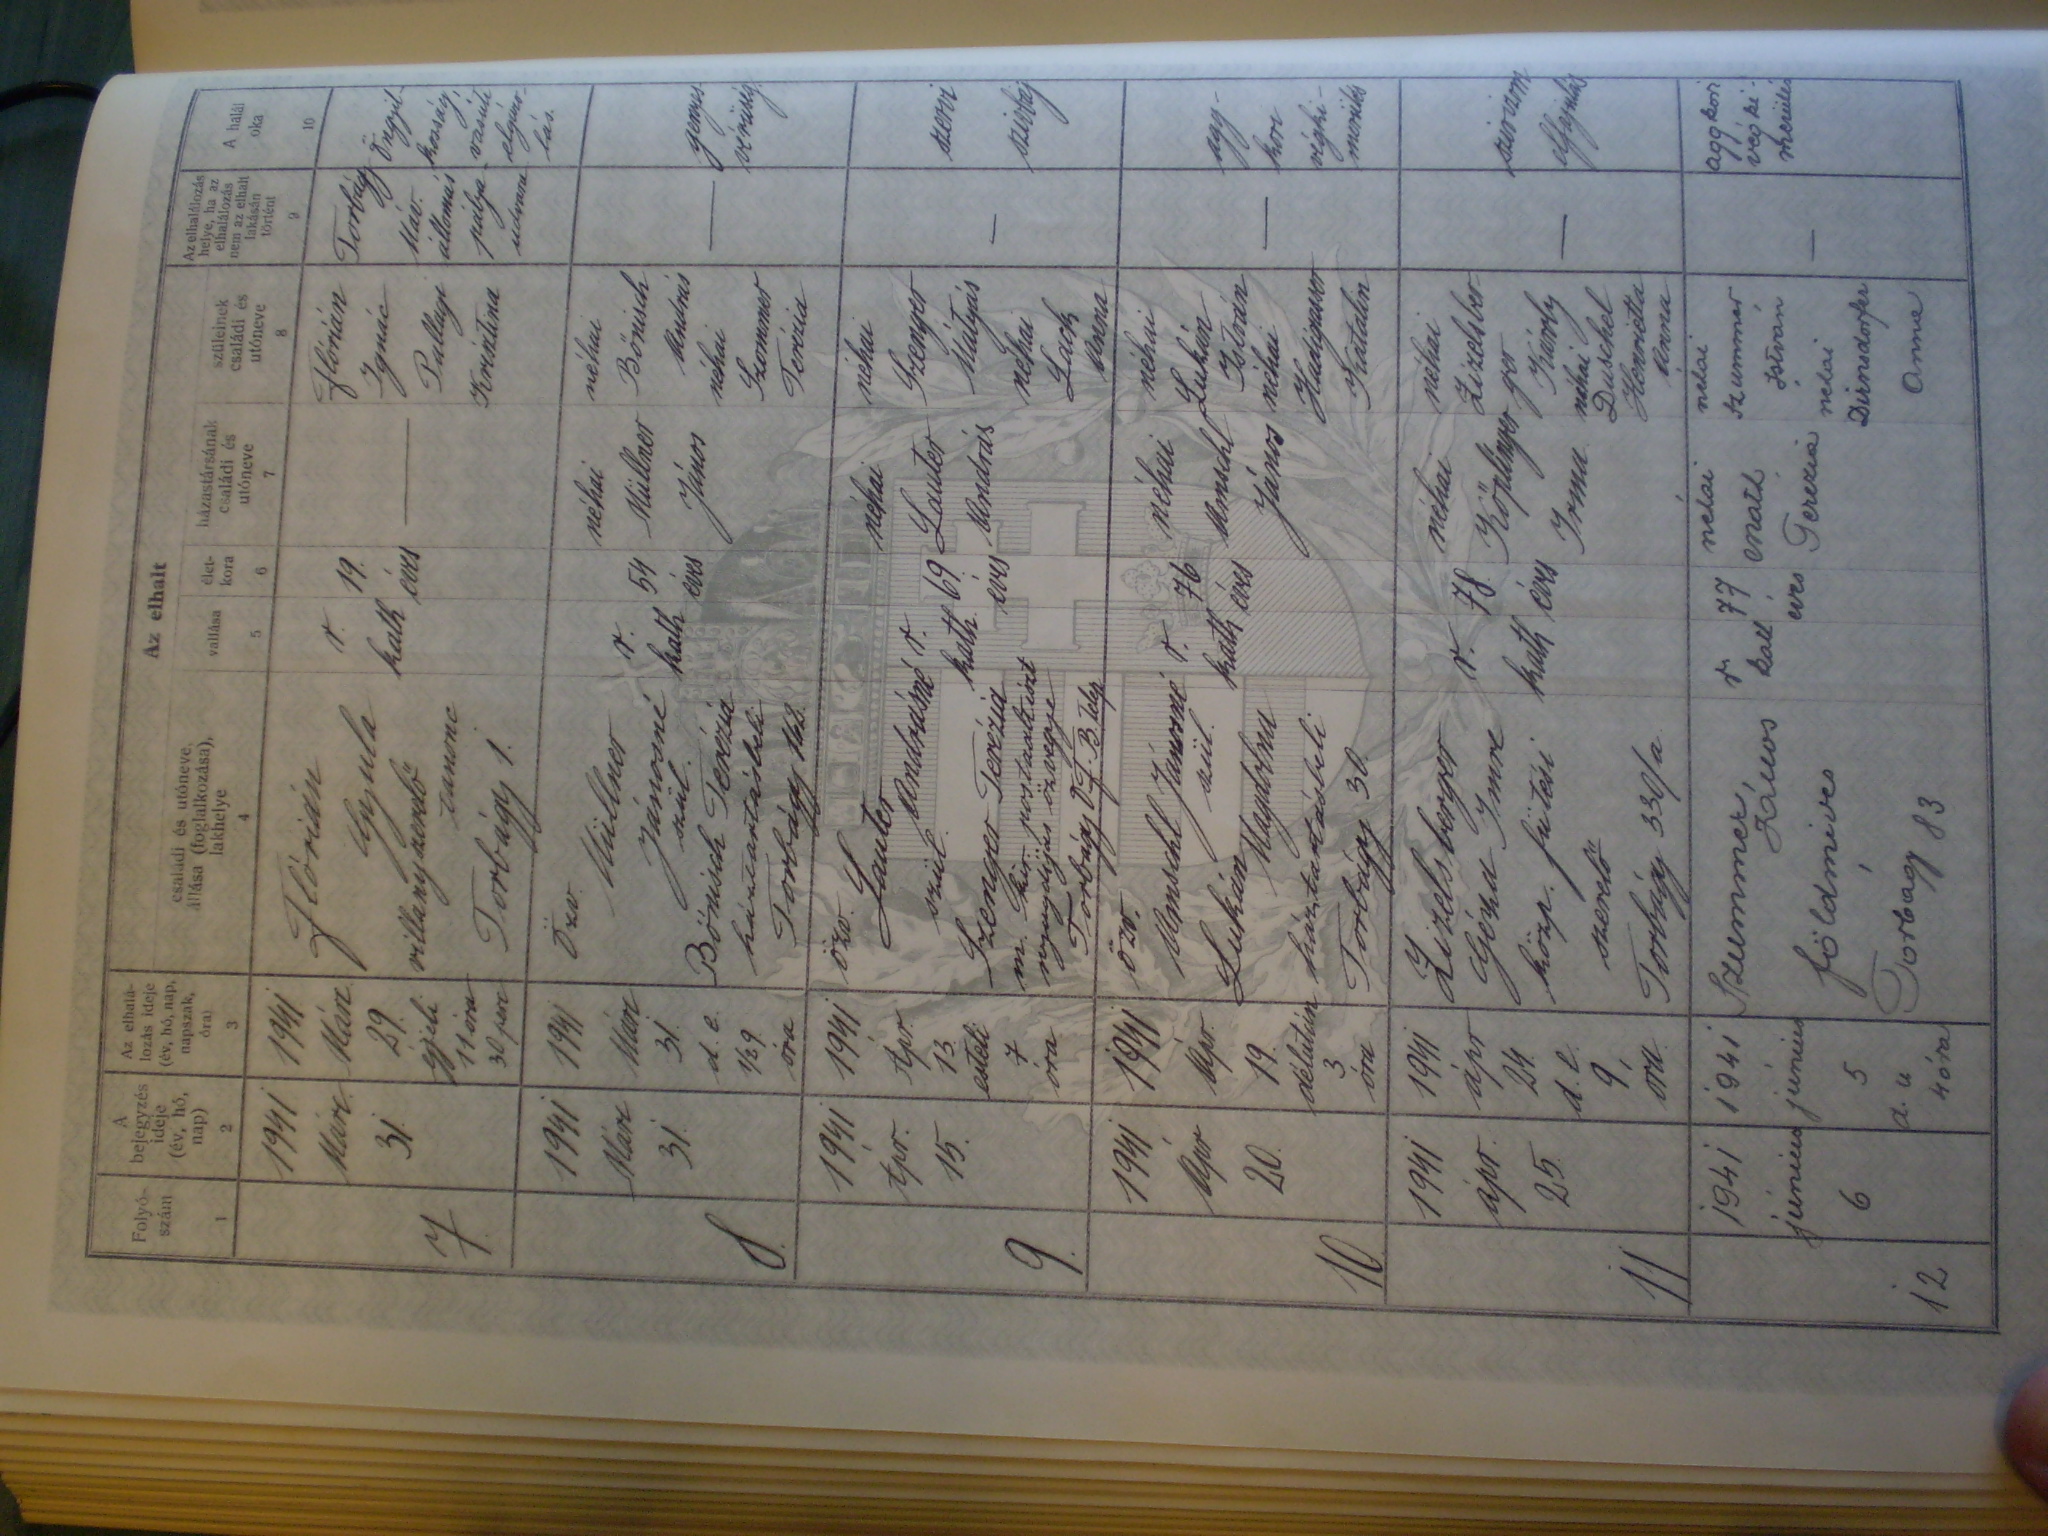 Az elhalt
Folyó-
szám
A
bejegyzés
ideje
(év, hó,
nap)
Az elhalá-
lozás ideje
(év, hó, nap,
napszak,
óra)
családi és utóneve,
állása (foglalkozása),
lakhelye
vallása
élet-
kora
házastársának
családi és
utóneve
szüleinek
családi és
utóneve
Az elhalálozás
helye, ha az
elhalálozás
nem az elhalt
lakásán
történt
A halál
oka
1 2 3 4 5 6 7 8 9 10
7.
1941
Márc.
31.
1941
Márc.
29.
éjjeli
11 óra
30 perc
Flórián
Gyula
villanyszerelő
tanonc
Torbágy 1.
r.
kath
19.
éves
—
Flórián
Ignác
Pallagi
Krisztina
Torbágy
Máv.
állomás
pálya
udvara
Öngyil-
kosság,
vasúti
elgázo-
lás.
8.
1941
Márc
31.
1941
Márc
31.
d. e.
1/29
óra
Özv.
Müllner
Jánosné
szül.
Bőnisch Terézia
háztartásbeli
Torbágy
r.
kath
54
éves
néhai
Müllner
János
néhai
Bőnisch
András
néhai
Szommer
Terézia
—
genyes
vérűség
9.
1941
Ápr.
15.
1941
Ápr.
13
esteli
7
óra
özv.
Sauter
Andrásné
szül.
Szenger Terézia
m. kir. postaaltiszt
nyugdíjas özvegye
Torbágy
r.
kath.
69
éves
néhai
Sauter
András
néhai
Szenger
Mátyás
néhai
Lack
Anna
—
szervi
szívbaj
10
1941
Ápr
20.
1941
Ápr.
19.
délután
3
óra
özv.
Amschl Jánosné
szül.
Lukán Magdolna
háztartásbeli
Torbágy 30
r.
kath
76
éves
néhai
Amschl
János
néhai
Lukán
István
néhai
Katalin
—
agg-
kori
végki-
merülés
11
1941
ápr.
25.
1941
ápr
24.
d. e.
9.
óra.
Zizelsberger
Géza Imre
közp. fűtési
szerelő
Torbágy 330/a.
r.
kath
78
éves
néhai
Köplinger
Irma.
néhai
Zizelsber-
ger
Károly
néhai
Duschel
Henrietta
Anna
—
szívizom
elfajulás
12
1941
június
6
1941
június
5
d. u
4 óra
Szummer,
János
földmíves
Torbágy 83
r
kath
77
éves
nehai
Terézia
nehai
Szummer
István
nehai
Dirnsdorfer
Anna
—
aggkori
végki-
merülés